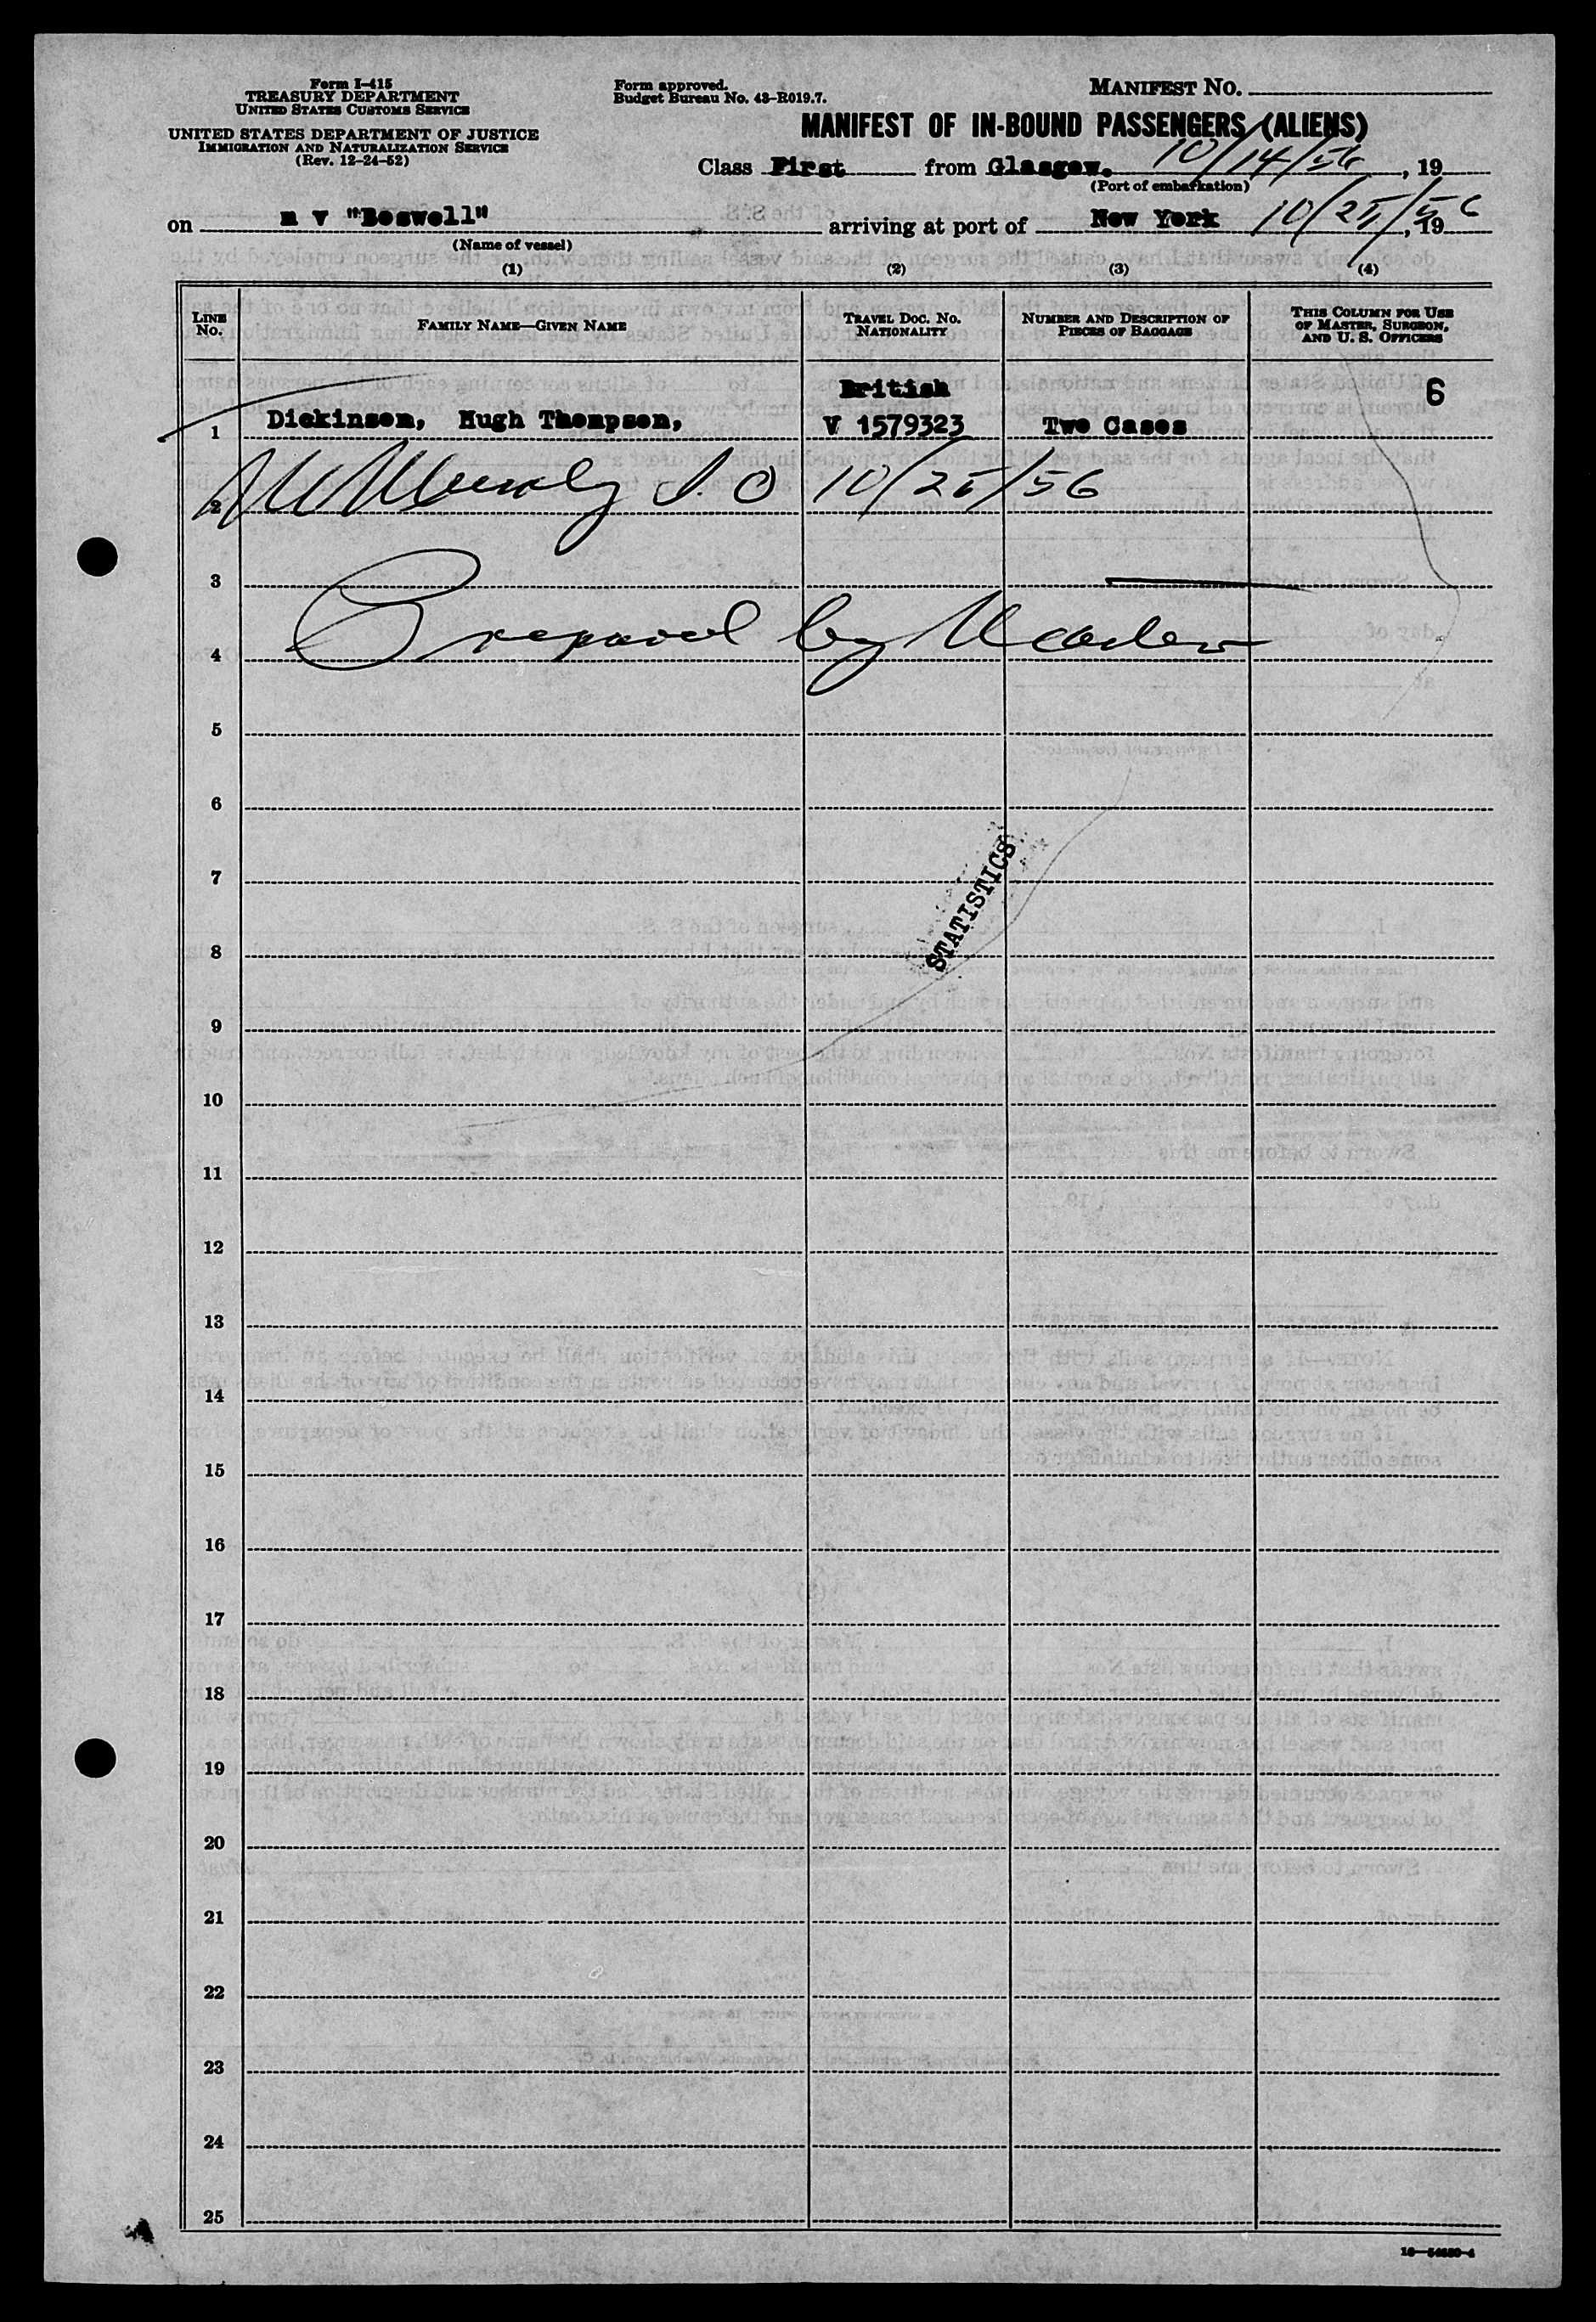 Form I-415
TREASURY DEPARTMENT
UNITED STATES CUSTOMS SERVICE
UNITED STATES DEPARTMENT OF JUSTICE
IMMIGRATION AND NATURALIZATION SERVICE
(Rev. 12-24-52)
Form approved.
Budget Bureau No. 43-R019.7.
MANIFEST NO.
MANIFEST OF IN-BOUND PASSENGERS (ALIENS)
Class First from Glasgow. 10/14/56, 19
(Port of embarkation)
on m v "Boswell" arriving at port of New York 10/25/56, 19
(Name of vessel)
(1) (2) (3) (4)
LINE NO. FAMILY NAME—GIVEN NAME TRAVEL DOC. NO. NATIONALITY NUMBER AND DESCRIPTION OF PIECES OF BAGGAGE THIS COLUMN FOR USE OF MASTER, SURGEON, AND U. S. OFFICERS
British 6
1 Dickinson, Hugh Thompson, V 1579323 Two Cases
2 10/25/56
3
4 Prepared by
5
6
7
STATISTICS
8
9
10
11
12
13
14
15
16
17
18
19
20
21
22
23
24
25